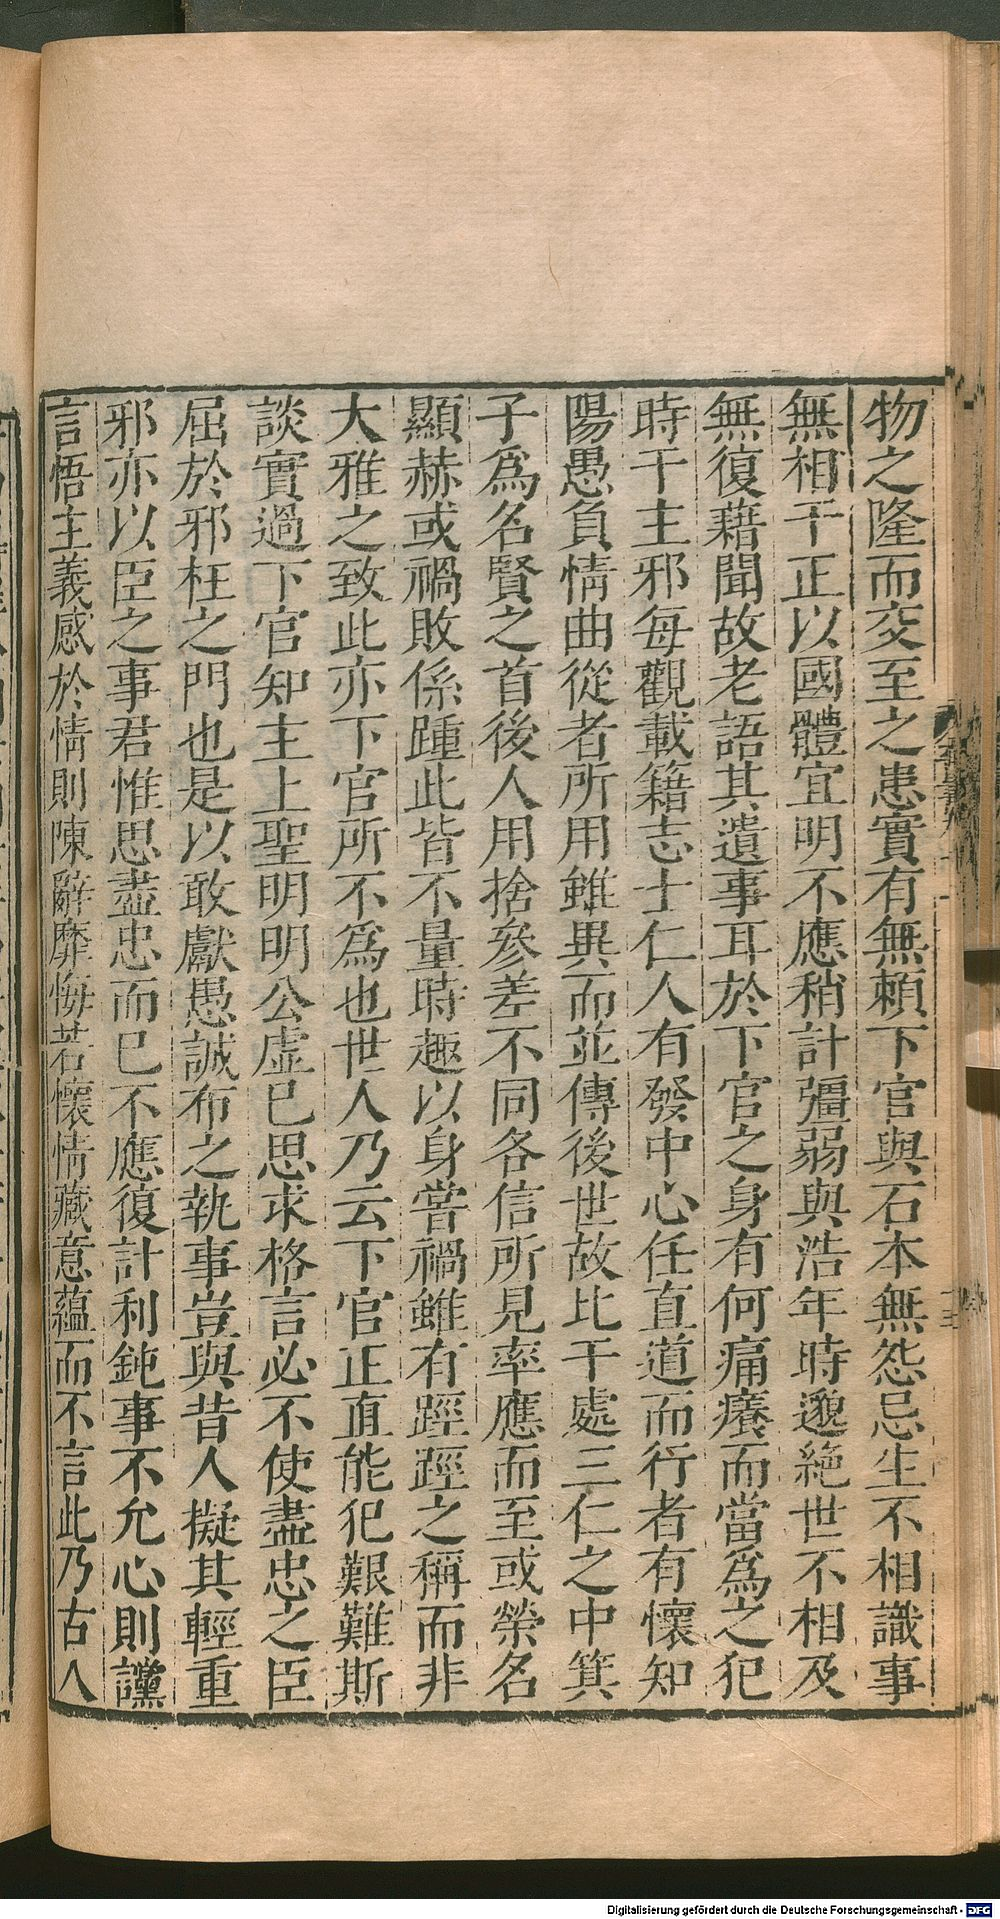 物之隆而交至之患實有無賴下官與石本無怨忌生不相識事
無相干正以國體宜明不應稍計彊弱與浩年時邈絶世不相及
無復藉聞故老語其遺事耳於下官之身有何痛癢而當爲之犯
時干主邪每觀載籍志士仁人有發中心任直道而行者有懷知
陽愚負情曲從者所用雖異而並傳後世故比干處三仁之中箕
子爲名賢之首後人用捨參差不同各信所見率應而至或榮名
顯赫或禍敗係踵此皆不量時趣以身嘗禍雖有踁踁之稱而非
大雅之致此亦下官所不爲也世人乃云下官正直能犯艱難斯
談實過下官知主上聖明明公虛已思求格言必不使盡忠之臣
屈於邪枉之門也是以敢獻愚誠布之執事豈與昔人擬其輕重
邪亦以臣之事君惟思盡忠而已不應復計利鈍事不允心則讜
言悟主義感於情則陳辭靡悔若懷情藏意蘊而不言此乃古人
Digitalisierung gefördert durch die Deutsche Forschungsgemeinschaft - DFG